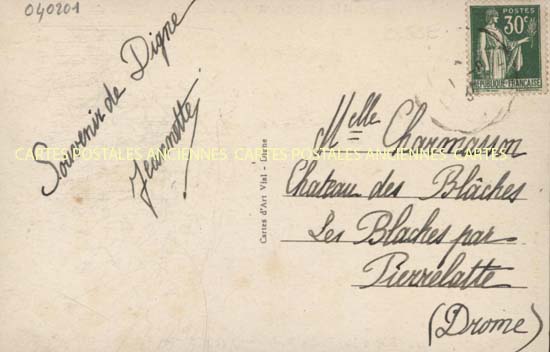 040201
Souvenir de Digne
Jeannette
CARTES POSTALES ANCIENNES CARTES POSTALES ANCIENNES CARTES
Cartes d'Art Vial - Digne
POSTES
30c
REPUBLIQUE FRANÇAISE
Melle Charmasson
Chateau des Blâches
Les Blaches par
Pierrelatte
(Drome)